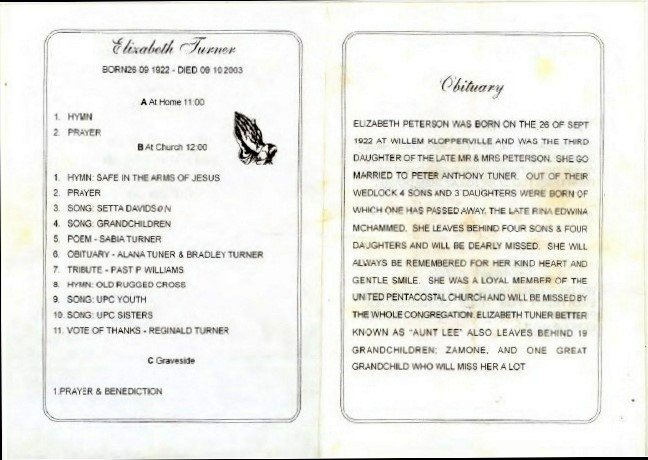 Elizabeth Turner
BORN26 09 1922 - DIED 09 10 2003
A At Home 11:00
1. HYMN
2. PRAYER
B At Church 12:00
1. HYMN: SAFE IN THE ARMS OF JESUS
2. PRAYER
3. SONG: SETTA DAVIDSON
4. SONG: GRANDCHILDREN
5. POEM - SABIA TURNER
6. OBITUARY - ALANA TUNER & BRADLEY TURNER
7. TRIBUTE - PAST P WILLIAMS
8. HYMN: OLD RUGGED CROSS
9. SONG: UPC YOUTH
10. SONG: UPC SISTERS
11. VOTE OF THANKS - REGINALD TURNER
C Graveside
1.PRAYER & BENEDICTION
Obituary
ELIZABETH PETERSON WAS BORN ON THE 26 OF SEPT
1922 AT WILLEM KLOPPERVILLE AND WAS THE THIRD
DAUGHTER OF THE LATE MR & MRS PETERSON. SHE GO
MARRIED TO PETER ANTHONY TUNER. OUT OF THEIR
WEDLOCK 4 SONS AND 3 DAUGHTERS WERE BORN OF
WHICH ONE HAS PASSED AWAY, THE LATE RINA EDWINA
MCHAMMED. SHE LEAVES BEHIND FOUR SONS & FOUR
DAUGHTERS AND WILL BE DEARLY MISSED. SHE WILL
ALWAYS BE REMEMBERED FOR HER KIND HEART AND
GENTLE SMILE. SHE WAS A LOYAL MEMBER OF THE
UNITED PENTACOSTAL CHURCH AND WILL BE MISSED BY
THE WHOLE CONGREGATION. ELIZABETH TUNER BETTER
KNOWN AS "AUNT LEE" ALSO LEAVES BEHIND 19
GRANDCHILDREN; ZAMONE, AND ONE GREAT
GRANDCHILD WHO WILL MISS HER A LOT